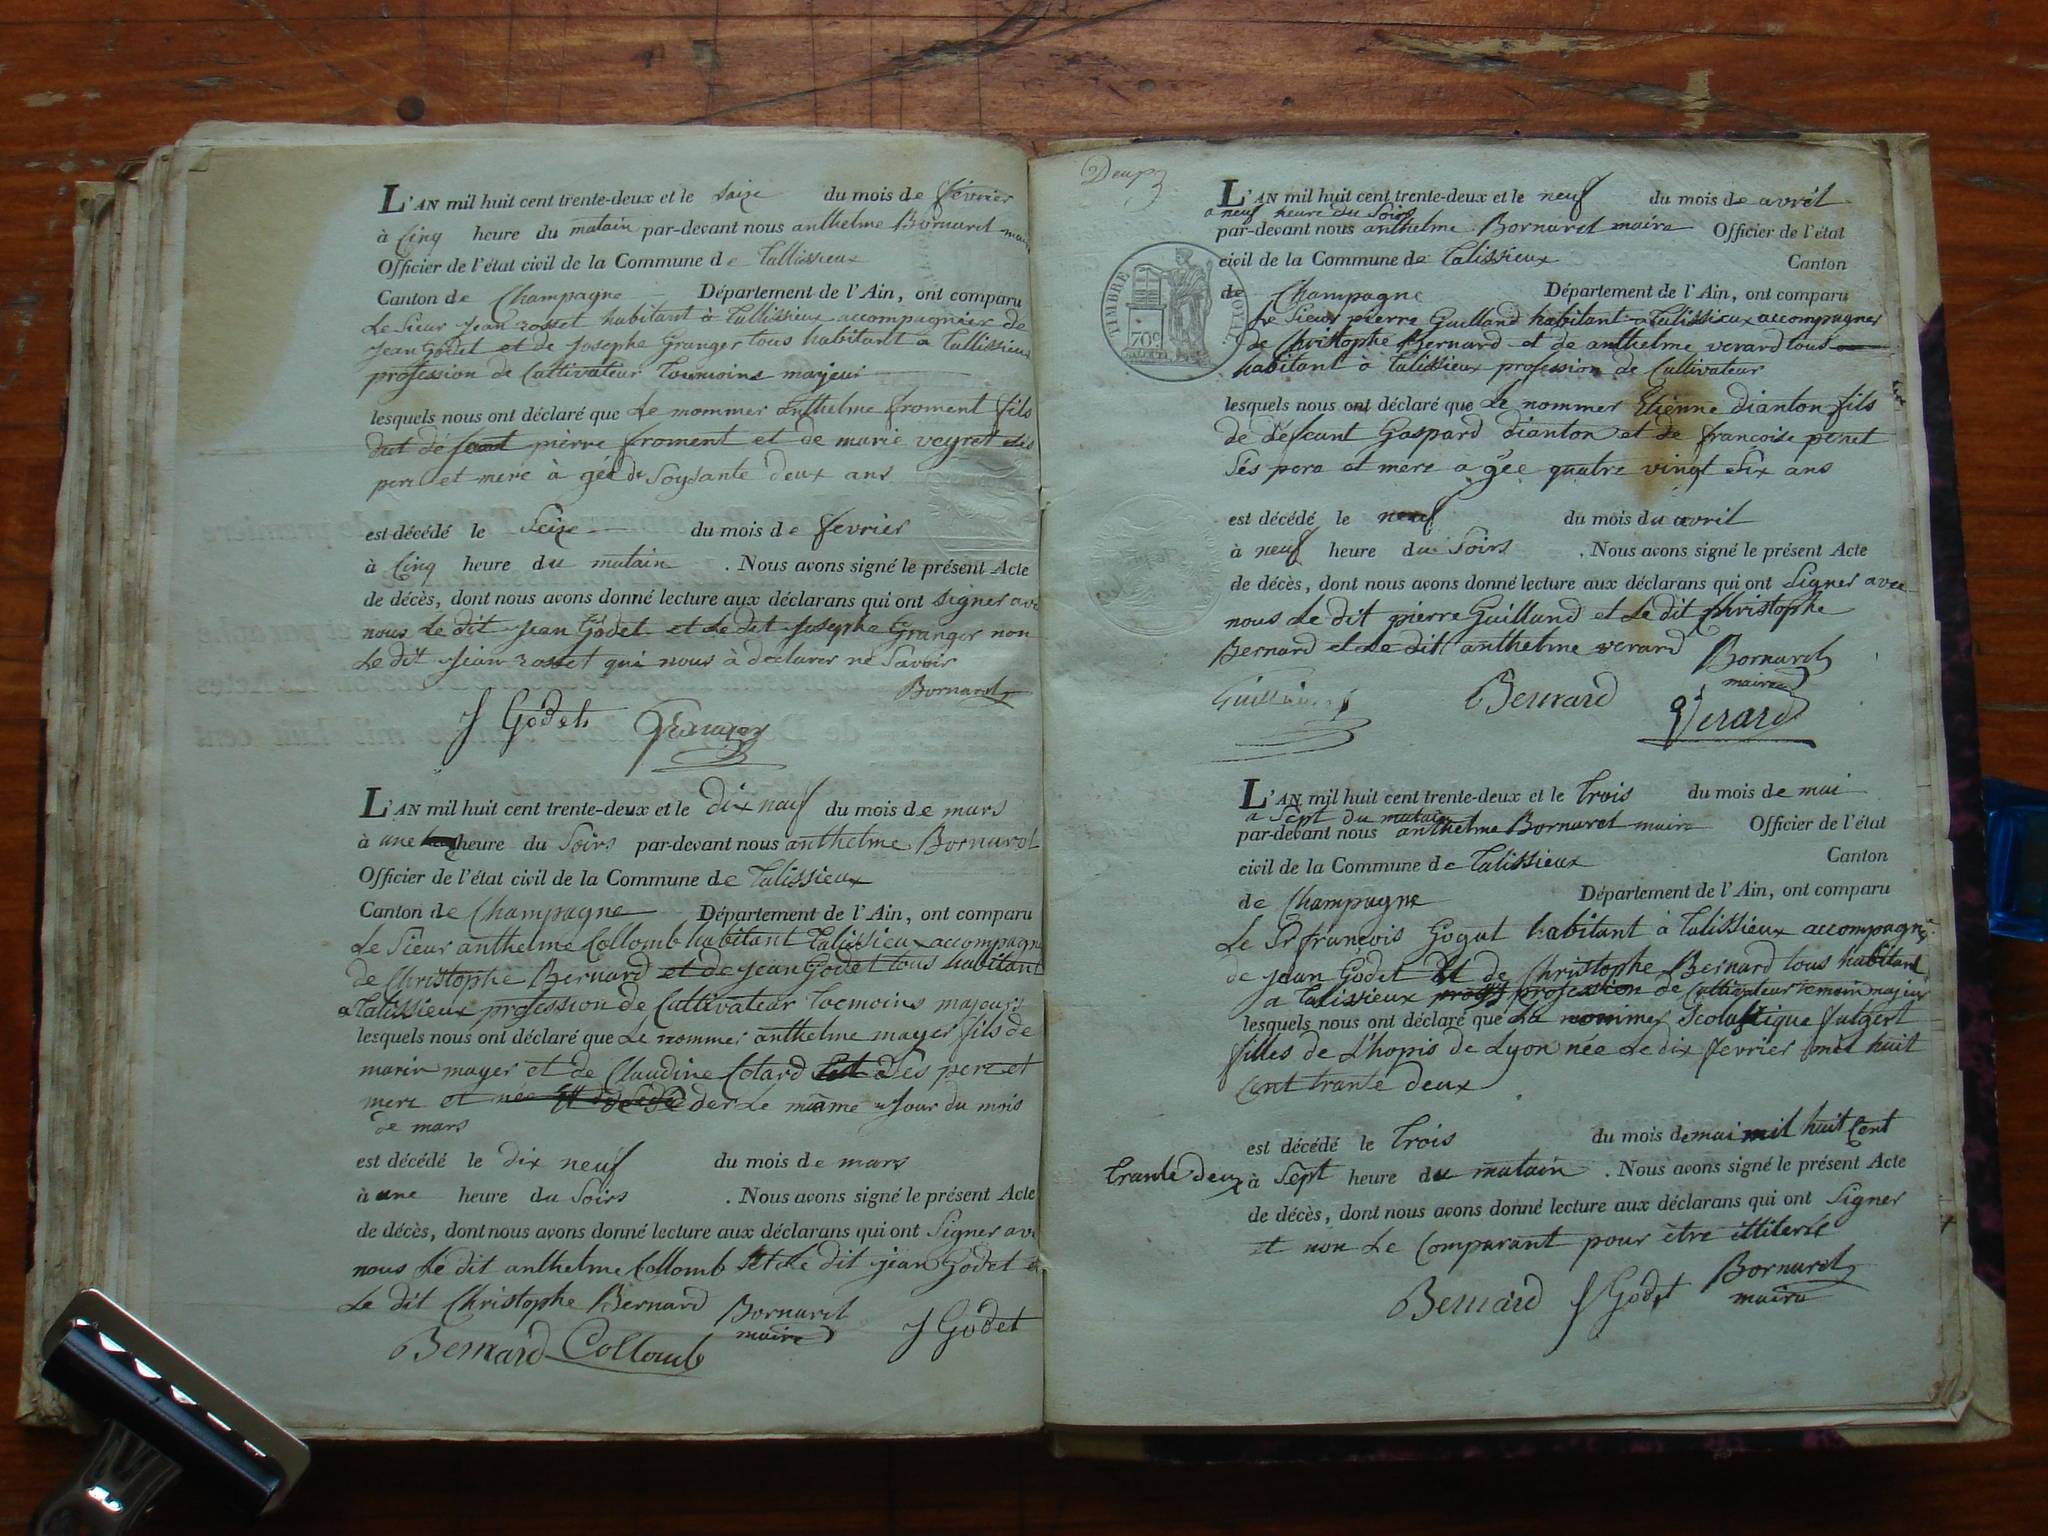 L'AN mil huit cent trente-deux et le saize du mois de février
à Cinq heure du matain par-devant nous anthelme Bornarel
Officier de l'état civil de la Commune de Tallissieux
Canton de Champagne Département de l'Ain, ont comparu
Le Sieur jean rosset habitant à Tallissieux accompagnier de
jean Godet et de josephe Granger tous habitant a Tallissieux
profession de Cultivateur Toemoins marjeur
lesquels nous ont déclaré que Le nommer anthelme froment fils
pierre froment et de marie veyret
pere et mere à gée de Soysante deux ans
est décédé le Seize du mois de fevrier
à Cinq heure du matain . Nous avons signé le présent Acte
de décès, dont nous avons donné lecture aux déclarans qui ont signer
nous Le dit jean Godet et Le dit josephe Granger non
Le dit jean rosset qui nous à declarer ne Savoir
Bornarel
J Godet Granger
L'AN mil huit cent trente-deux et le dix neuf du mois de mars
à une heure du Soirs par-devant nous anthelme Bornarel
Officier de l'état civil de la Commune de Talissieux
Canton de Champagne Département de l'Ain, ont comparu
Le Sieur anthelme Collomb habitant Talissieux accompagn
de Christophe Bernard et de jean Godet tous habitant
a Talissieux profession de Cultivateur Toemoins majeurs
lesquels nous ont déclaré que Le nommer anthelme mayer fils de
marin mayer et de Claudine Cotard Ses pere et
mere et der Le mame jour du mois
de mars
est décédé le dix neuf du mois de mars
à une heure du Soirs . Nous avons signé le présent Acte
de décès, dont nous avons donné lecture aux déclarans qui ont Signer
nous Le dit anthelme Collomb et Le dit jean Godet
Le dit Christophe Bernard Bornarel
maire J Godet
Bernard Collomb
Deux
L'AN mil huit cent trente-deux et le neuf du mois de avril
a neuf heure du Soirs
par-devant nous anthelme Bornarel maire Officier de l'état
civil de la Commune de Talissieux Canton
de Champagne Département de l'Ain, ont comparu
TIMBRE ROYAL
70c
Le Sieur pierre Guilland habitant a Talissieux accompagner
de Christophe Bernard et de anthelme verard tous
habitant à Talissieux profession de Cultivateur
lesquels nous ont déclaré que Le nommer Etienne dianton fils
de defeunt Gaspard dianton et de francoise penet
Ses pere et mere a gée quatre vingt Six ans
est décédé le neuf du mois du avril
à neuf heure du Soirs . Nous avons signé le présent Acte
de décès, dont nous avons donné lecture aux déclarans qui ont Signer avec
nous Le dit pierre Guilland et Le dit Christophe
Bernard et Le dit anthelme verard Bornarel
maire
Guilland Bernard Verard
L'AN mil huit cent trente-deux et le trois du mois de mai
a Sept du matain
par-devant nous anthelme Bornarel maire Officier de l'état
civil de la Commune de Talissieux Canton
de Champagne Département de l'Ain, ont comparu
Le Sr francois Gogut habitant à Talissieux accompagner
de jean Godet et de Christophe Bernard tous habitant
a Talissieux profession de Cultivateur temoin majeur
lesquels nous ont déclaré que La nommer Scolastique fulgert
filles de L'hopis de Lyon née Le dix fevrier mil huit
Cent trante deux
est décédé le trois du mois de mai mil huit Cent
trante deux à Sept heure du matain . Nous avons signé le présent Acte
de décès, dont nous avons donné lecture aux déclarans qui ont Signer
et non Le Comparant pour être illiteré
Bernard J Godet Bornarel
maire